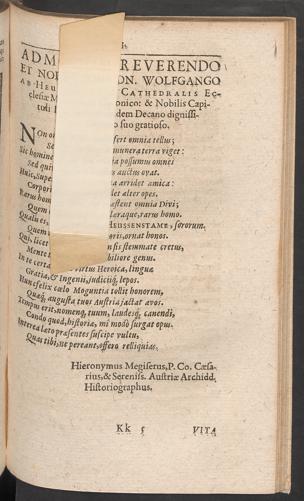 I.
ADM REVERENDO
ET NO DN. WOLFGANGO
AB HEU CATHEDRALIS EC-
clesiæ M onico: & Nobilis Capi-
tuli dem Decano dignissi-
o suo gratioso.
NOn o fert omnia tellus;
munera terra viget:
Sic homine a possumus omnes
Sed qui s auctus ovat.
Huic, Super a arridet amica:
Corpori det alter opes.
Rarus hom
Quem astent omnia Divi;
Qualu es, laraque, rarus homo.
Quem HEUSSENSTAME, sororum.
Qui, licet oris, ornat honos.
sis stemmate cretus,
Mente biliore genus.
In te certa virtus Heroica, lingua
Gratia, & Ingenij, judicijq, lepos.
Hunc felix cœlo Moguntia tollit honorem,
Quaq, augusta tuos Austria jactat avos.
Tempus erit, nomenq, tuum, laudesq, canendi,
Condo quod, historia, mi modò surgat opus.
Interea læto præsentes suscipe vultu,
Quas tibi, ne pereant, offero relliquias.
Hieronymus Megiserus, P. Co. Cæsa-
rius, & Sereniss. Austriæ Archidd.
Historiographus.
Kk 5 VITA